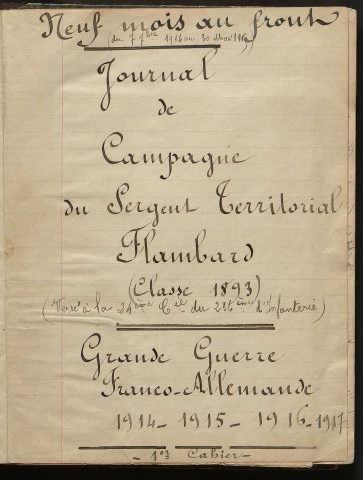 Neuf mois au front
Journal
de
Campagne
du Sergent Territorial
Flambard
(Classe 1893)
(Versé à la 24ème Cie du 236ème d'Infanterie)
Grande Guerre
Franco-Allemande
1914 - 1915 - 1916 - 1917
- 1er Cahier -